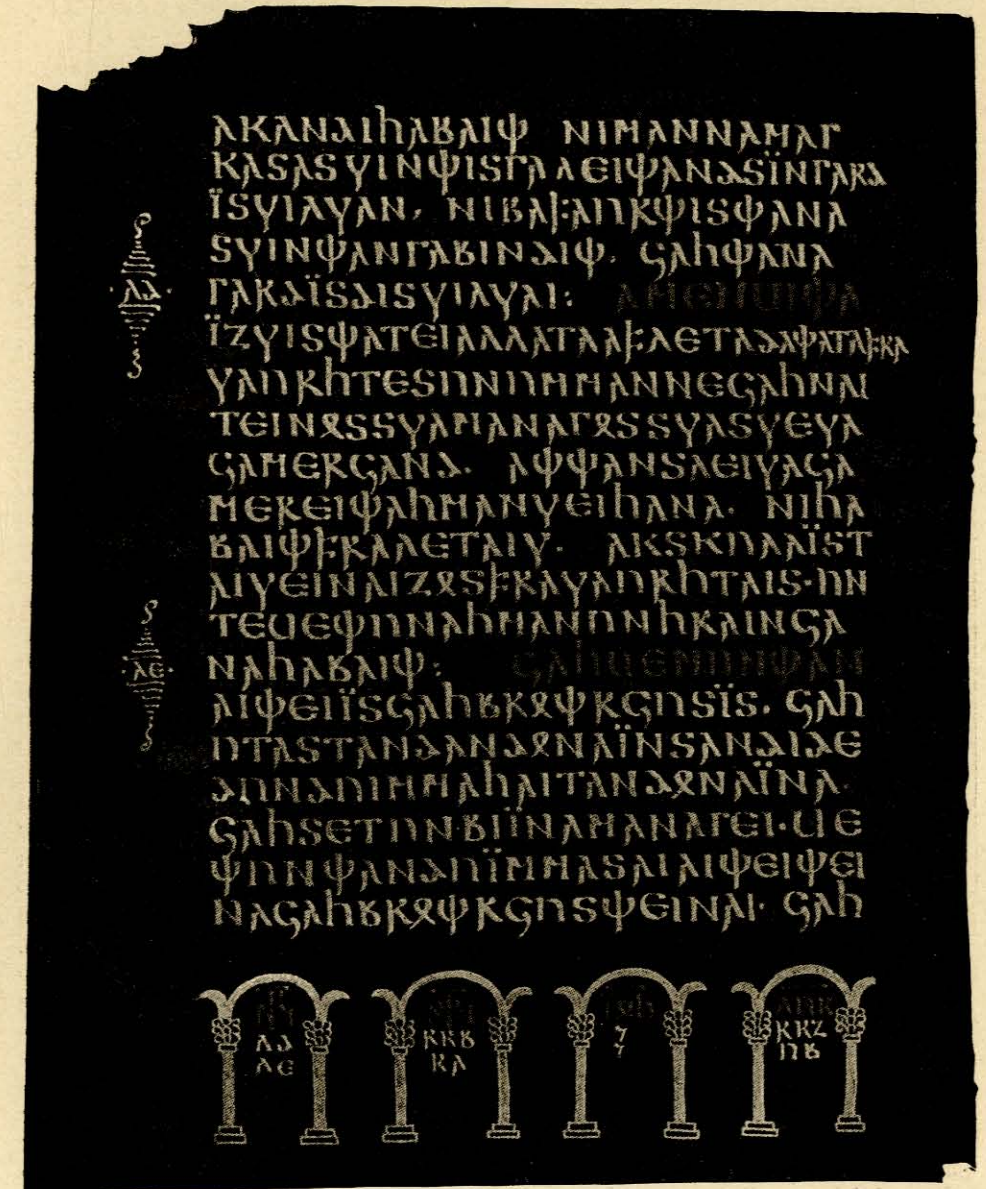 𐌰𐌺𐌰𐌽𐌳𐌹𐌷𐌰𐌱𐌰𐌹𐌸 𐌽𐌹𐌼𐌰𐌽𐌽𐌰𐌼𐌰𐌲
𐌺𐌰𐍃𐌰𐍃𐍅𐌹𐌽𐌸𐌹𐍃𐌲𐌰𐌻𐌴𐌹𐌸𐌰𐌽𐌳𐍃𐌹̈𐌽𐌲𐌰𐍂𐌳
𐌹̈𐍃𐍅𐌹𐌻𐍅𐌰𐌽· 𐌽𐌹𐌱𐌰𐍆𐌰𐌿𐍂𐌸𐌹𐍃𐌸𐌰𐌽𐌰
𐍃𐍅𐌹𐌽𐌸𐌰𐌽𐌲𐌰𐌱𐌹𐌽𐌳𐌹𐌸· 𐌾𐌰𐌷𐌸𐌰𐌽𐌰
·𐌻𐌳· 𐌲𐌰𐍂𐌳𐌹̈𐍃𐌳𐌹𐍃𐍅𐌹𐌻𐍅𐌰𐌹: 𐌰𐌼𐌴𐌽𐌵𐌹𐌸𐌰
𐌹̈𐌶𐍅𐌹𐍃𐌸𐌰𐍄𐌴𐌹𐌰𐌻𐌻𐌰𐍄𐌰𐌰𐍆𐌻𐌴𐍄𐌰𐌳𐌰𐌸𐌰𐍄𐌰𐍆𐍂𐌰
𐍅𐌰𐌿𐍂𐌷𐍄𐌴𐍃𐌿𐌽𐌿𐌼𐌼𐌰𐌽𐌽𐌴𐌾𐌰𐌷𐌽𐌰𐌹
𐍄𐌴𐌹𐌽𐍉𐍃𐍃𐍅𐌰𐌼𐌰𐌽𐌰𐌲𐍉𐍃𐍃𐍅𐌰𐍃𐍅𐌴𐍅𐌰
𐌾𐌰𐌼𐌴𐍂𐌾𐌰𐌽𐌳· 𐌰𐌸𐌸𐌰𐌽𐍃𐌰𐌴𐌹𐍅𐌰𐌾𐌰
𐌼𐌴𐍂𐌴𐌹𐌸𐌰𐌷𐌼𐌰𐌽𐍅𐌴𐌹𐌷𐌰𐌽𐌰· 𐌽𐌹𐌷𐌰
𐌱𐌰𐌹𐌸𐍆𐍂𐌰𐌻𐌴𐍄𐌰𐌹𐍅· 𐌰𐌺𐍃𐌺𐌿𐌻𐌰𐌹̈𐍃𐍄
𐌰𐌹𐍅𐌴𐌹𐌽𐌰𐌹𐌶𐍉𐍃𐍆𐍂𐌰𐍅𐌰𐌿𐍂𐌷𐍄𐌰𐌹𐍃·𐌿𐌽
𐍄𐌴𐌵𐌴𐌸𐌿𐌽𐌰𐌷𐌼𐌰𐌽𐌿𐌽𐌷𐍂𐌰𐌹𐌽𐌾𐌰
·𐌻𐌴· 𐌽𐌰𐌷𐌰𐌱𐌰𐌹𐌸: 𐌾𐌰𐌷𐌵𐌴𐌼𐌿𐌽𐌸𐌰𐌽
𐌰𐌹𐌸𐌴𐌹𐌹̈𐍃𐌾𐌰𐌷𐌱𐍂𐍉𐌸𐍂𐌾𐌿𐍃𐌹̈𐍃· 𐌾𐌰𐌷
𐌿𐍄𐌰𐍃𐍄𐌰𐌽𐌳𐌰𐌽𐌳𐍉𐌽𐌰𐌹̈𐌽𐍃𐌰𐌽𐌳𐌹𐌳𐌴
𐌳𐌿𐌽𐌳𐌿𐌹𐌼𐌼𐌰𐌷𐌰𐌹𐍄𐌰𐌽𐌳𐍉𐌽𐌰𐌹̈𐌽𐌰·
𐌾𐌰𐌷𐍃𐌴𐍄𐌿𐌽𐌱𐌹𐌹̈𐌽𐌰𐌼𐌰𐌽𐌰𐌲𐌴𐌹·𐌵𐌴
𐌸𐌿𐌽𐌸𐌰𐌽𐌳𐌿𐌹̈𐌼𐌼𐌰𐍃𐌰𐌹𐌰𐌹𐌸𐌴𐌹𐌸𐌴𐌹
𐌽𐌰𐌾𐌰𐌷𐌱𐍂𐍉𐌸𐍂𐌾𐌿𐍃𐌸𐌴𐌹𐌽𐌰𐌹· 𐌾𐌰𐌷
𐌻𐌳 𐍂𐌺𐌱 𐍂𐌺𐌶
𐌻𐌴